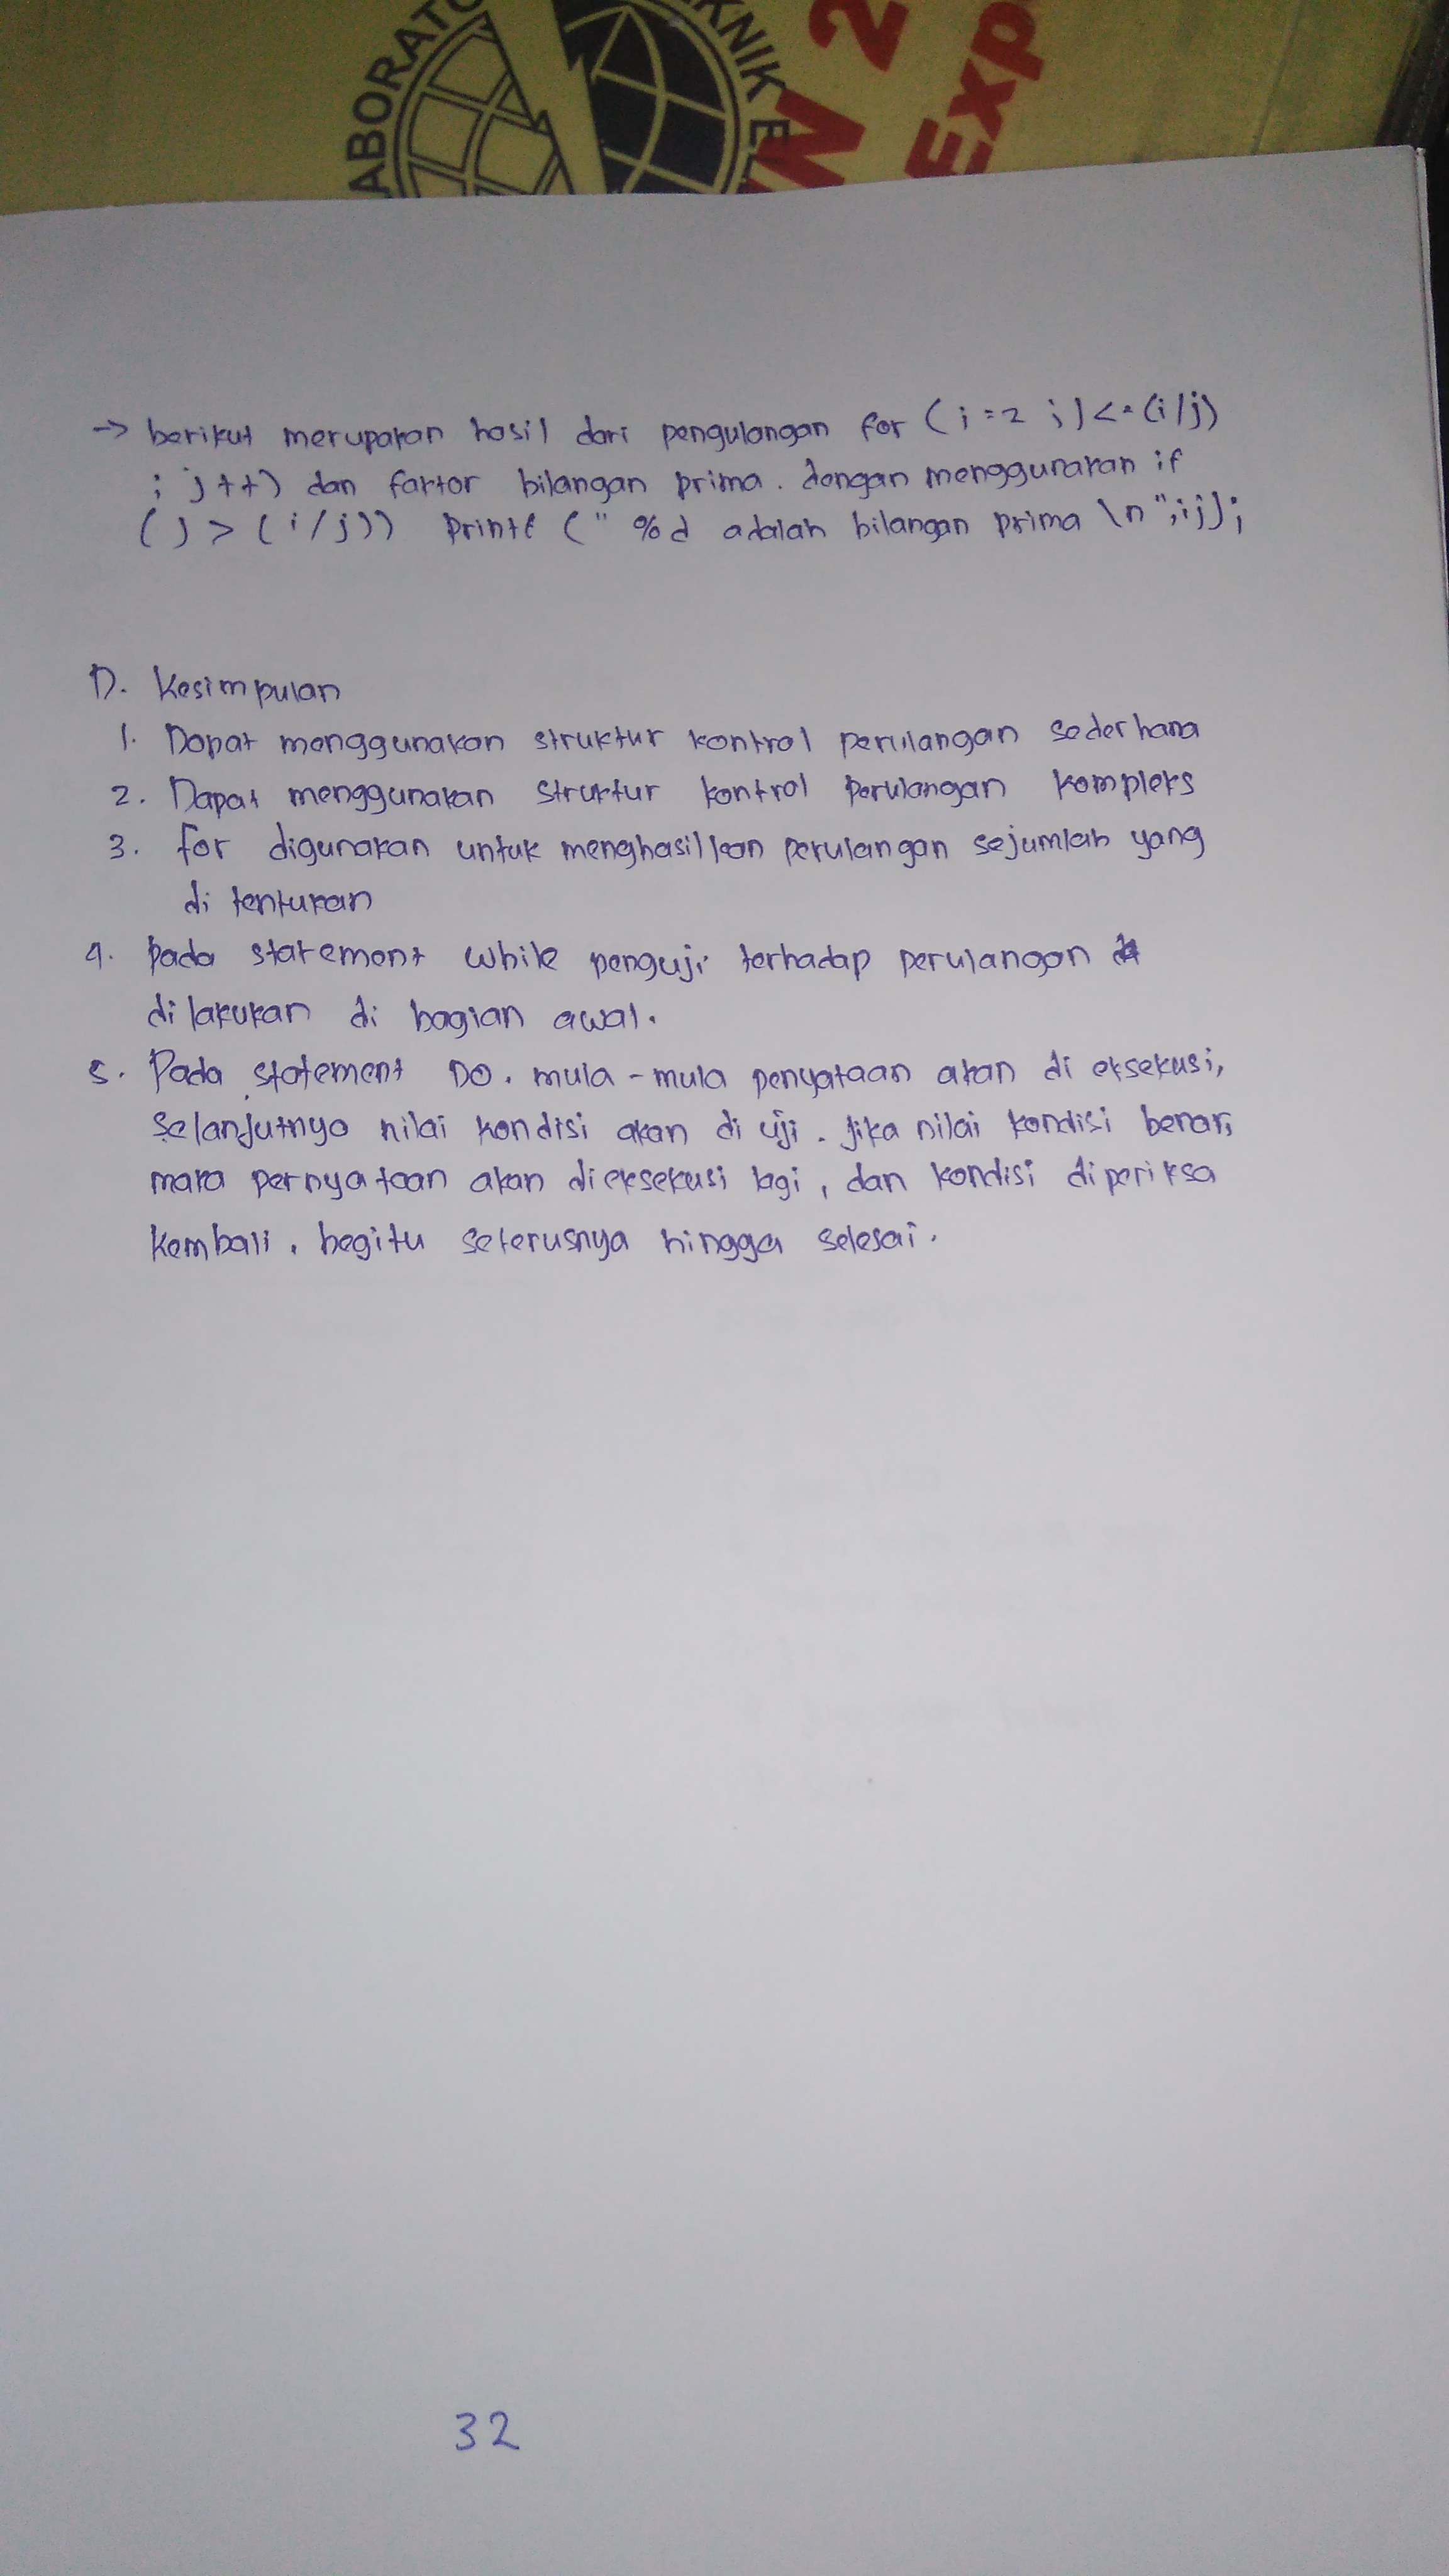 ABORATO
KNIK E
N 2
Exp
→ berikut merupakan hasil dari pengulangan for (j = 2 ; j <= (i/j)
; j++) dan faktor bilangan prima. dengan menggunakan if
(j > (i/j)) printf (" %d adalah bilangan prima \n",ij);
D. Kesimpulan
1. Dapat menggunakan struktur kontrol perulangan sederhana
2. Dapat menggunakan struktur kontrol perulangan kompleks
3. for digunakan untuk menghasilkan perulangan sejumlah yang
di tentukan
4. pada statement while penguji terhadap perulangan
di lakukan di bagian awal.
5. Pada statement DO. mula-mula penyataan akan di eksekusi,
selanjutnya nilai kondisi akan di uji. jika nilai kondisi benar,
maka pernyataan akan dieksekusi lagi, dan kondisi diperiksa
kembali. begitu seterusnya hingga selesai.
32